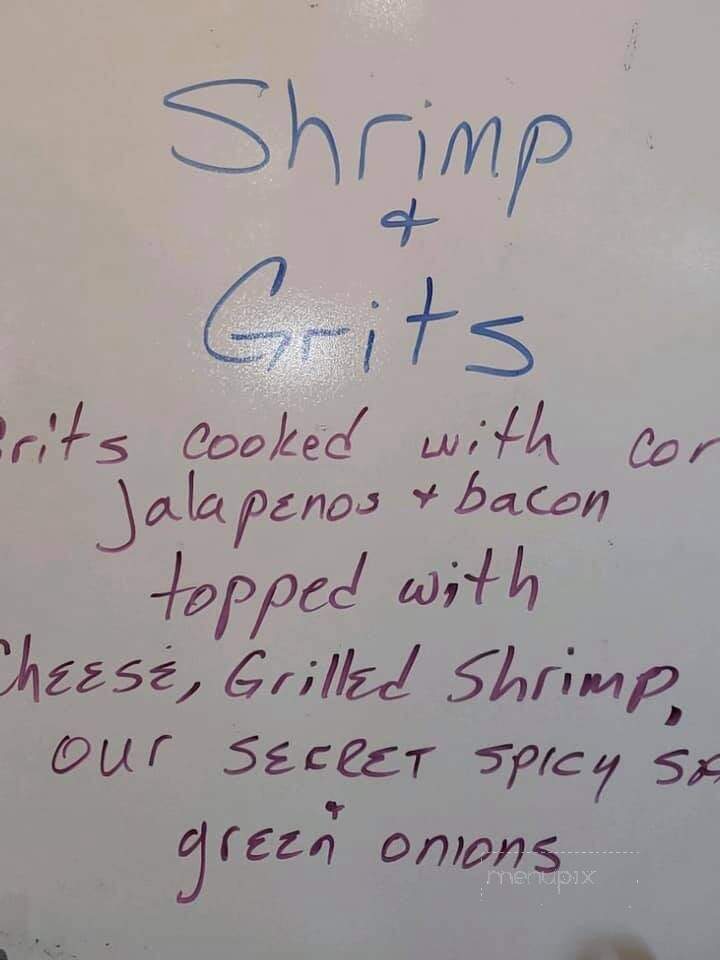 Shrimp
&
Grits
Grits cooked with cor
Jalapenos + bacon
topped with
Cheese, Grilled Shrimp,
our SECRET SPICY Sa
&
green onions
menupix